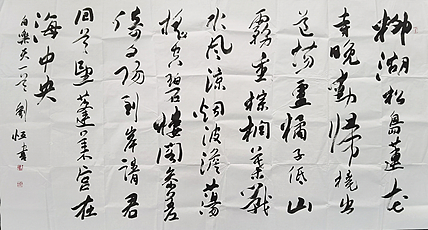 柳湖松島蓮花
寺晚動歸橈出
道場盧橘子低山
霧重棕櫚葉戰
水風涼烟波澹蕩
摇空碧樓閣參差
倚夕陽到岸請君
回首望蓬莱宫在
海中央
白樂天一首 劉恒書